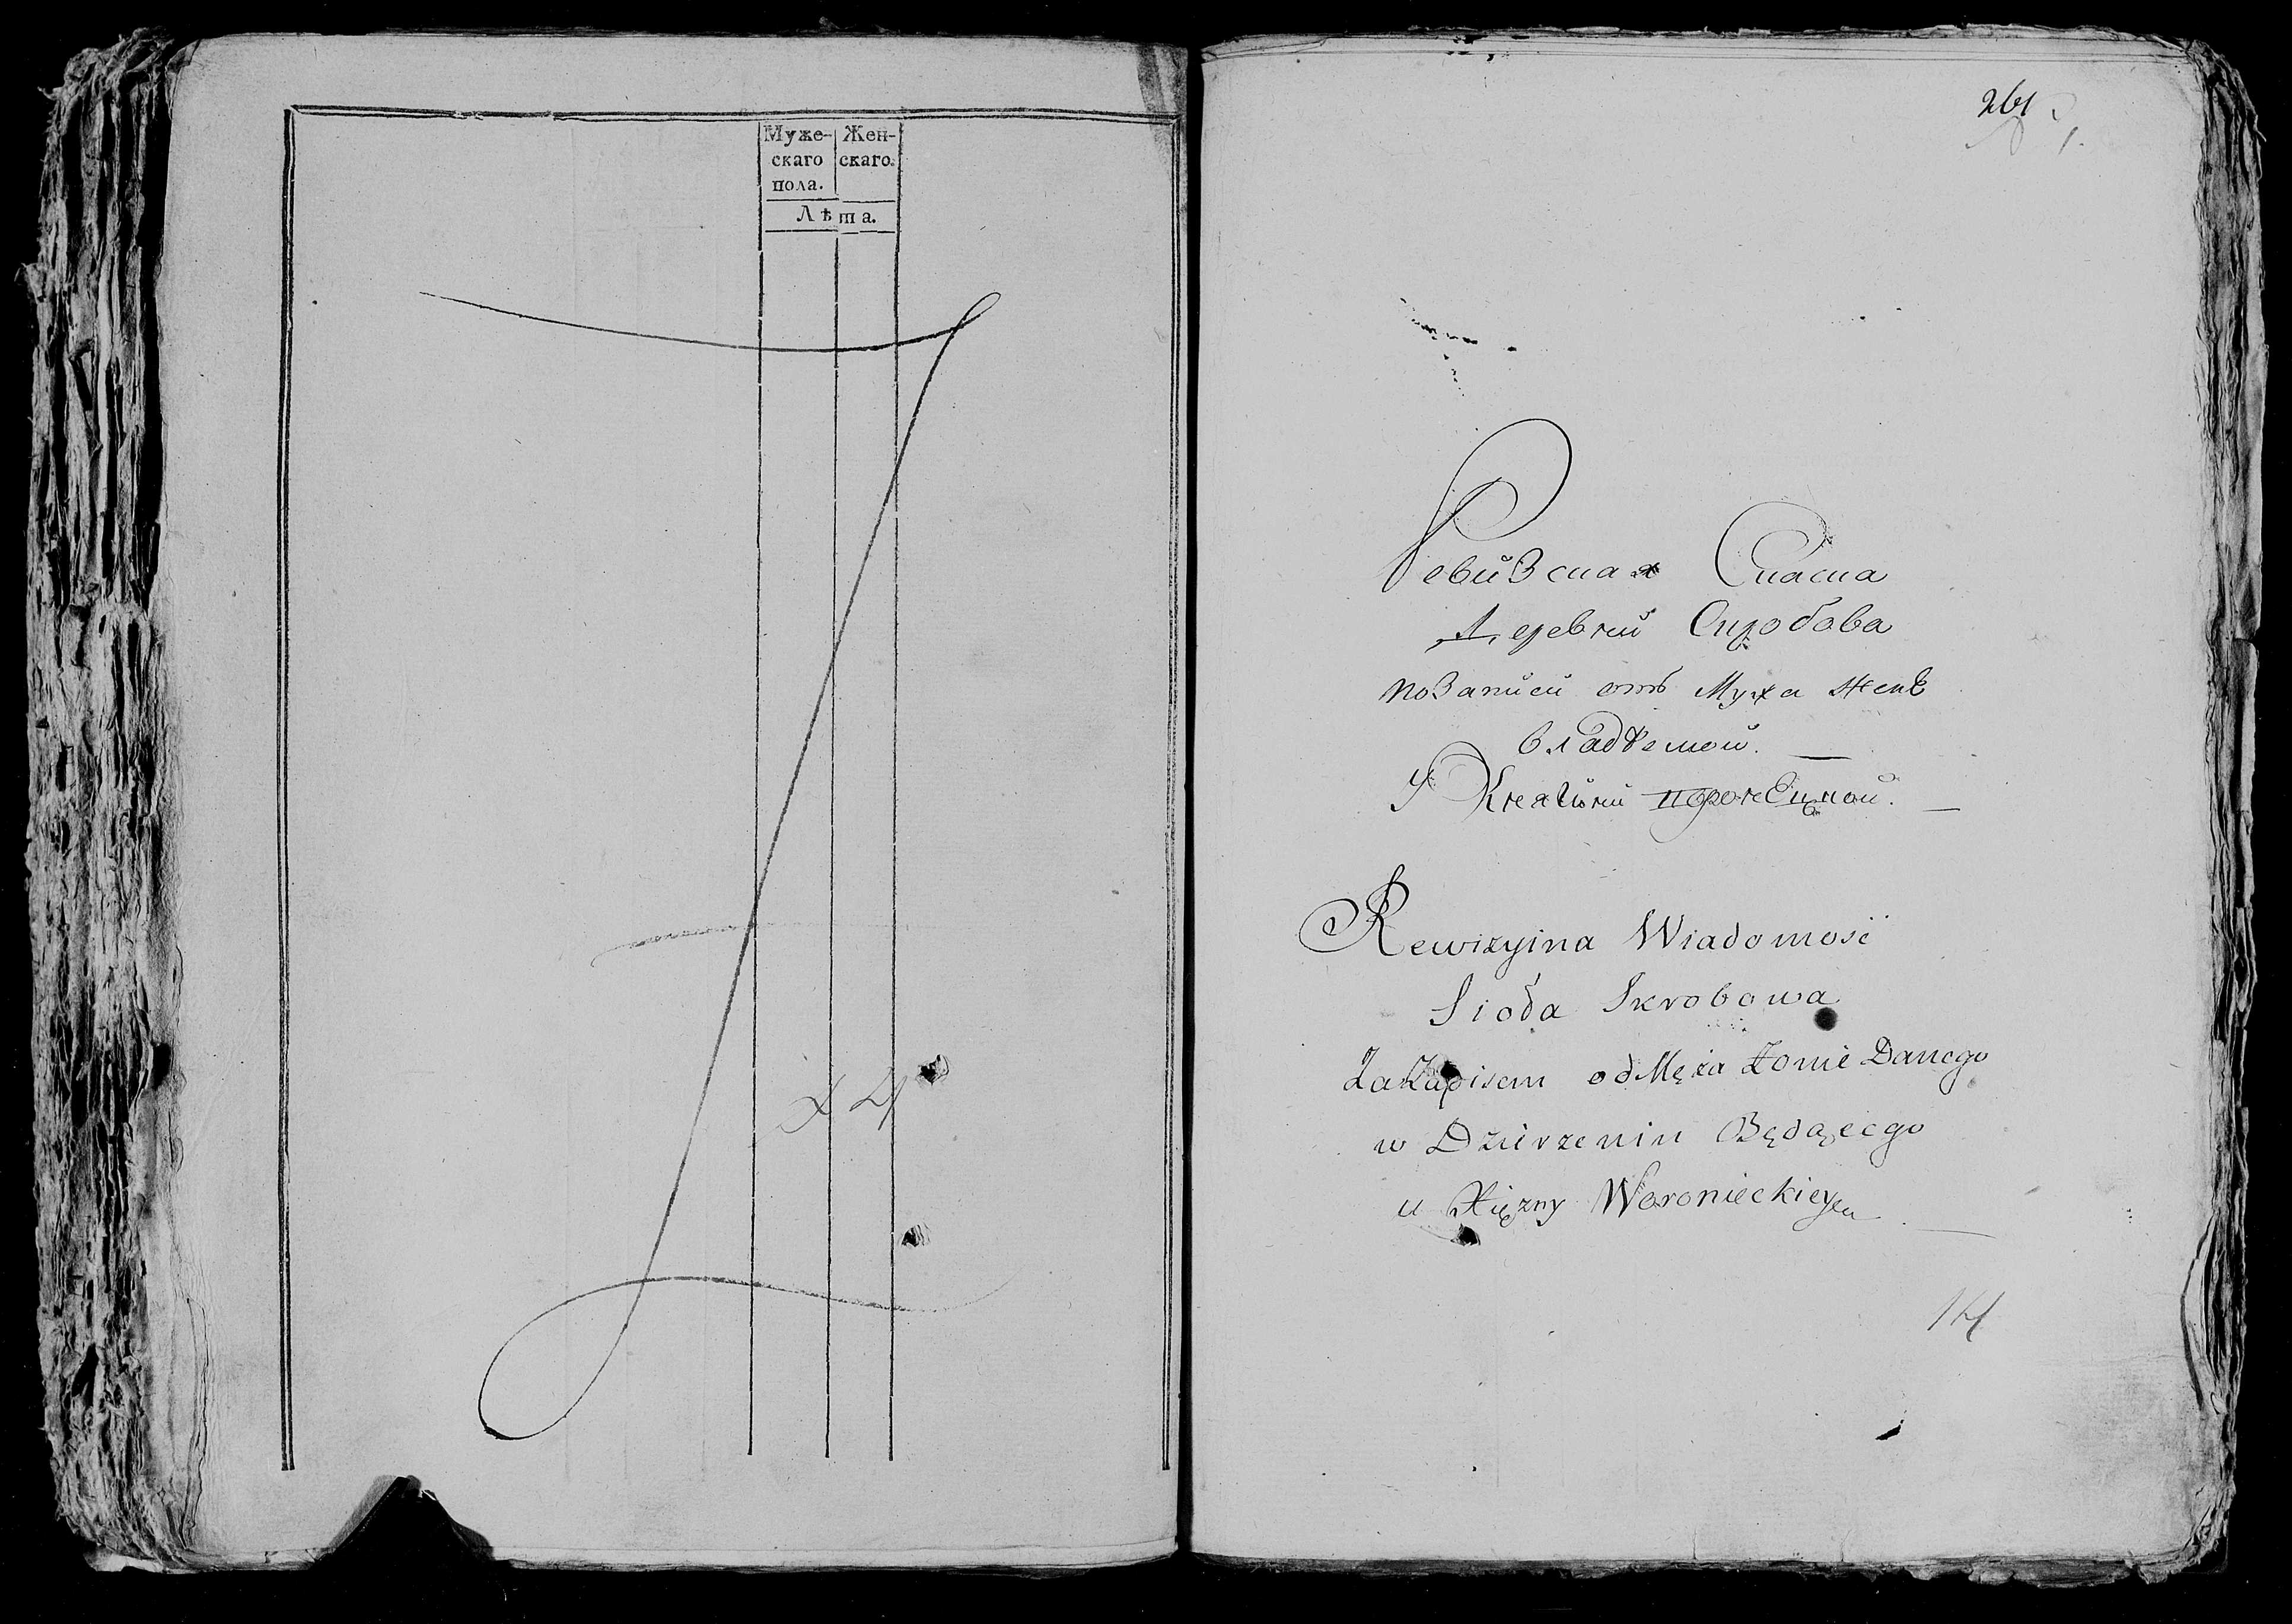 Муже-
скаго
пола.
Жен-
скаго.
Лѣта.
261
Ревизская Сказка
Деревни Скробова
по записи отъ Мужа женѣ
владѣемой.
У Княгини
Rewizyina Wiadomość
Sioła Skrobowa
Za Zapisem od Męża Żonie Danego
w Dzierżeniu Będącego
u Xiężny Woronieckiey
14